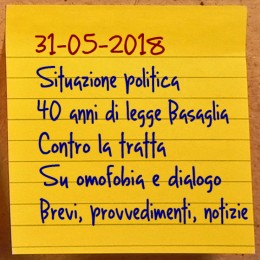 31-05-2018
Situazione politica
40 anni di legge Basaglia
Contro la tratta
Su omofobia e dialogo
Brevi, provvedimenti, notizie